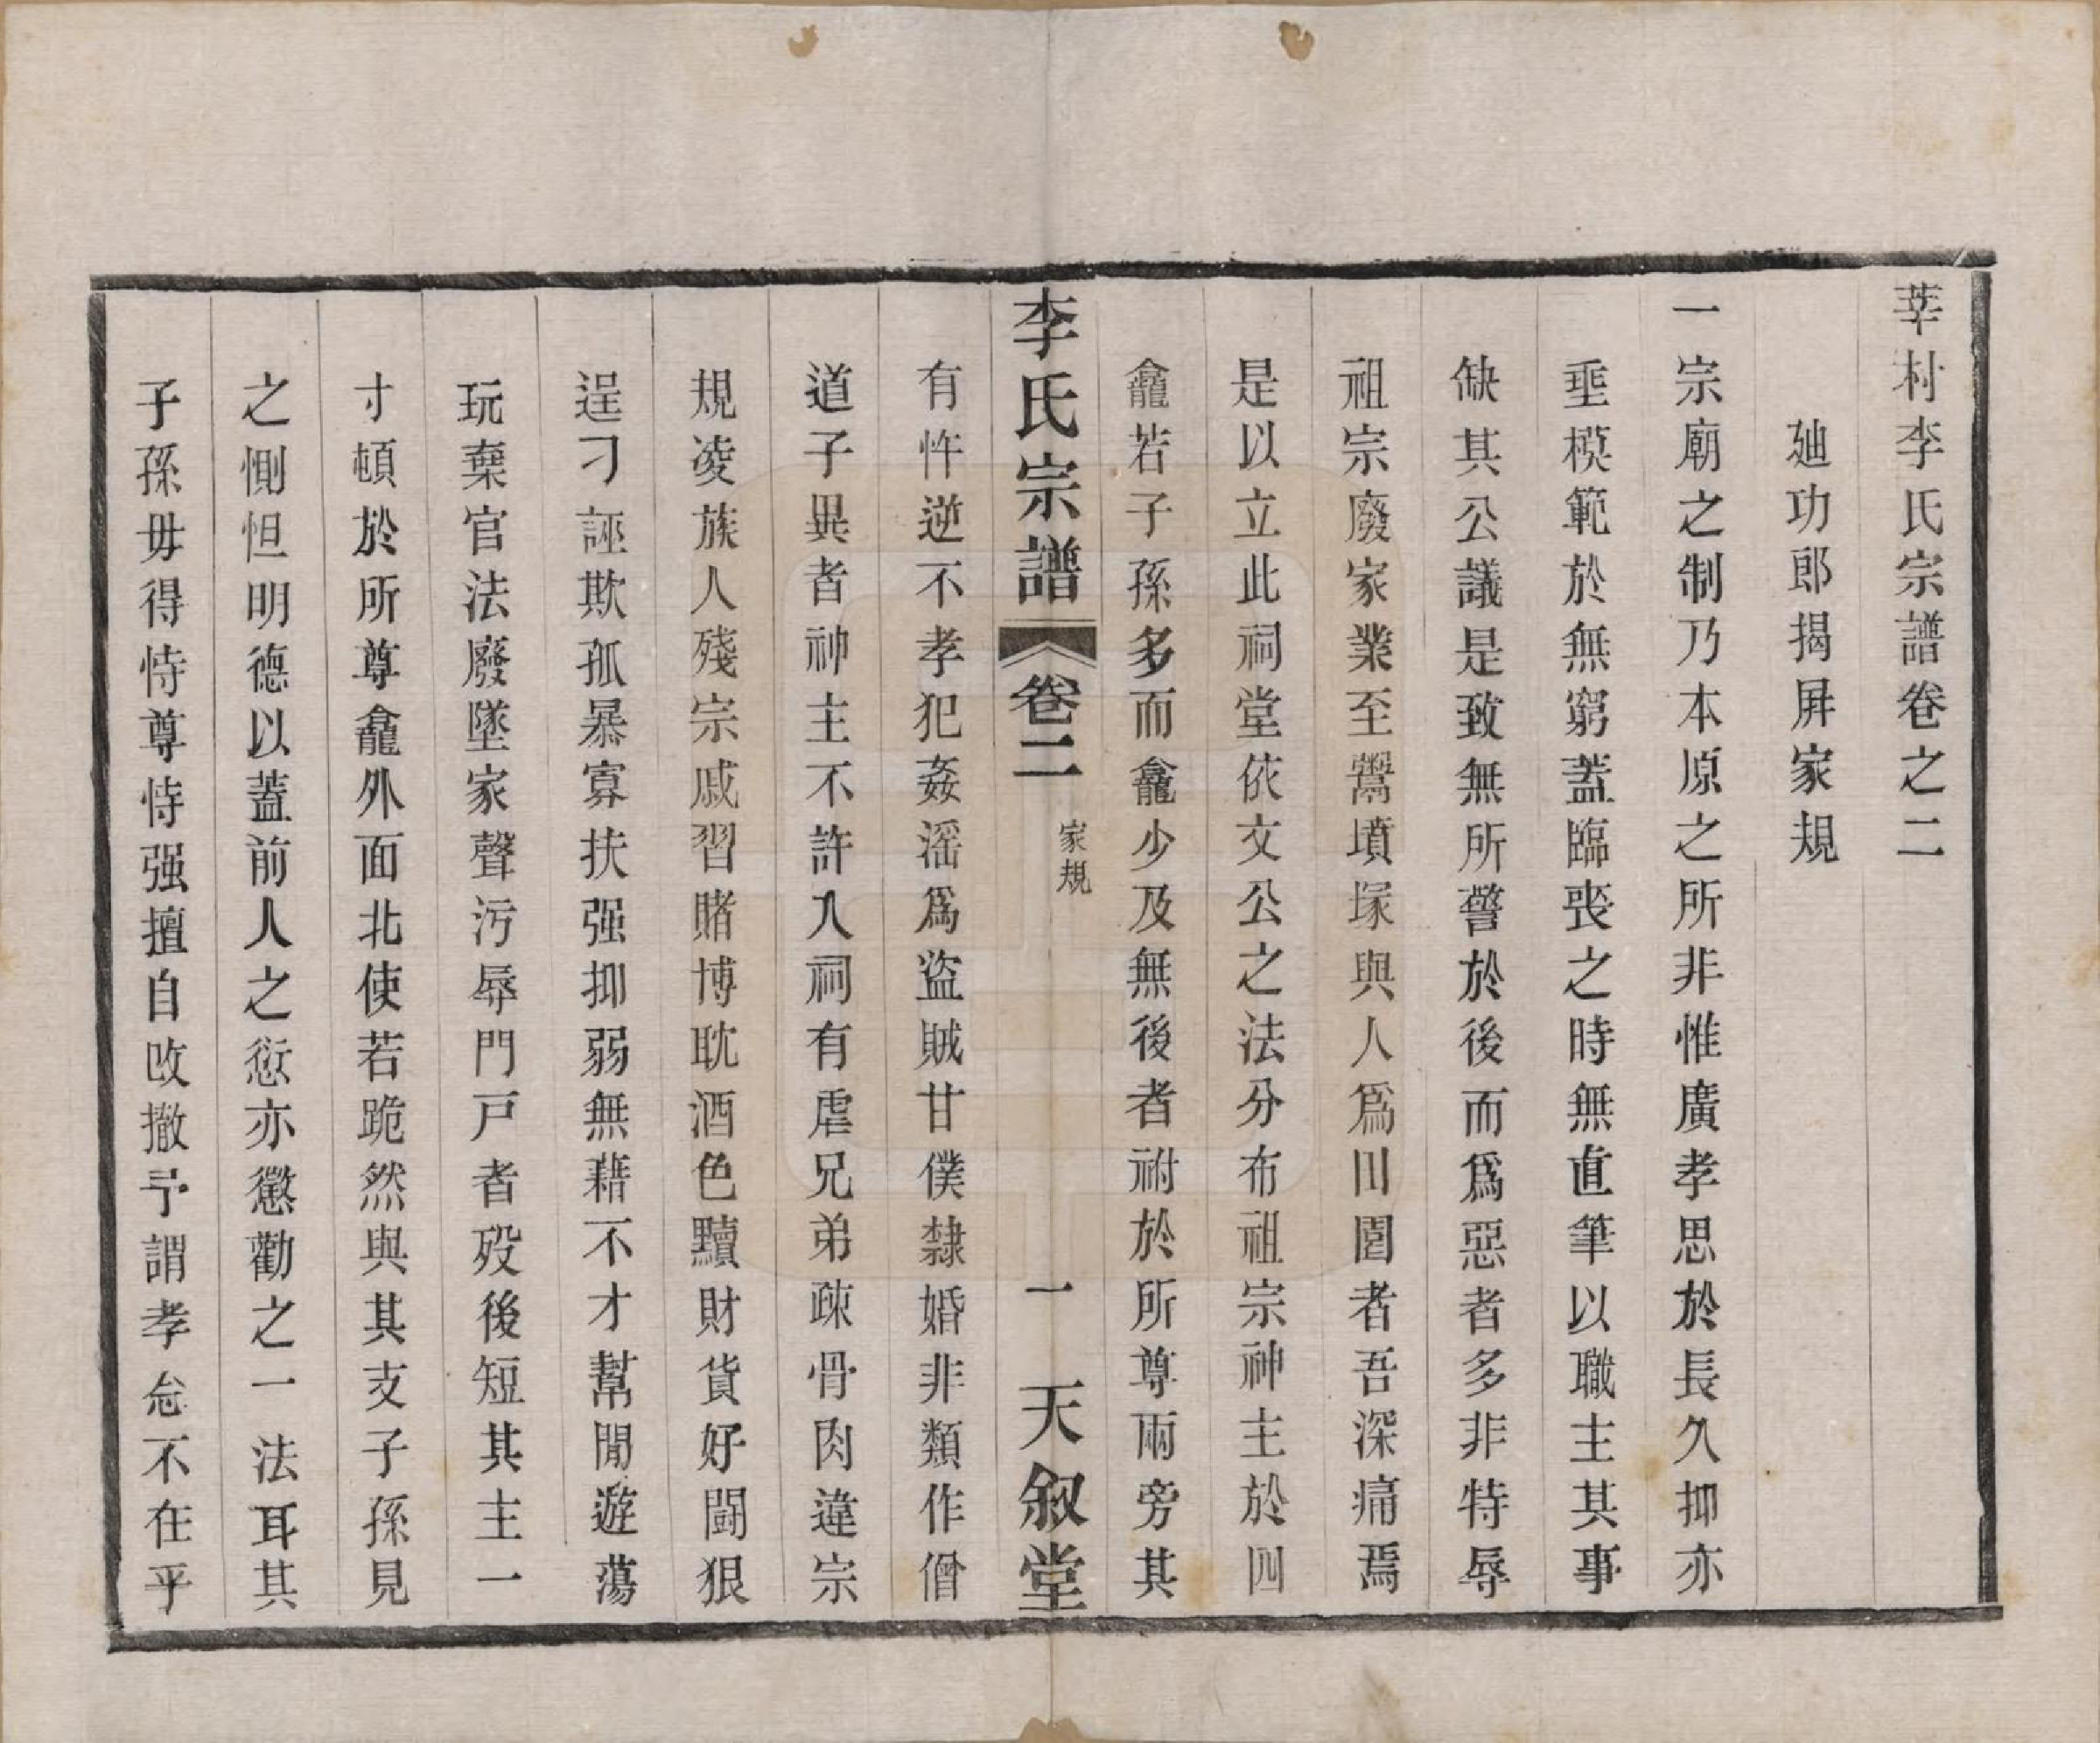 莘村李氏宗譜卷之二
廸功郎揭屏家規
一宗廟之制乃本原之所非惟廣孝思於長久抑亦
垂模範於無窮蓋臨喪之時無直筆以職主其事
缺其公議是致無所警於後而爲惡者多非特辱
祖宗廢家業至鬻墳塚與人爲田園者吾深痛焉
是以立此祠堂依文公之法分布祖宗神主於四
龕若子孫多而龕少及無後者祔於所尊兩旁其
李氏宗譜
卷二
家規
一
天敘堂
有忤逆不孝犯姦滛爲盜賊甘僕隸婚非類作僧
道子異者神主不許入祠有虐兄弟疎骨肉違宗
規凌族人殘宗戚習賭博耽酒色黷財貨好鬪狠
逞刁誣欺孤暴寡扶强抑弱無藉不才幫閒遊蕩
玩棄官法廢墜家聲污辱門戸者殁後短其主一
寸頓於所尊龕外面北使若跪然與其支子孫見
之惻怛明德以蓋前人之愆亦懲勸之一法耳其
子孫毋得恃尊恃强擅自改撤予謂孝忿不在乎